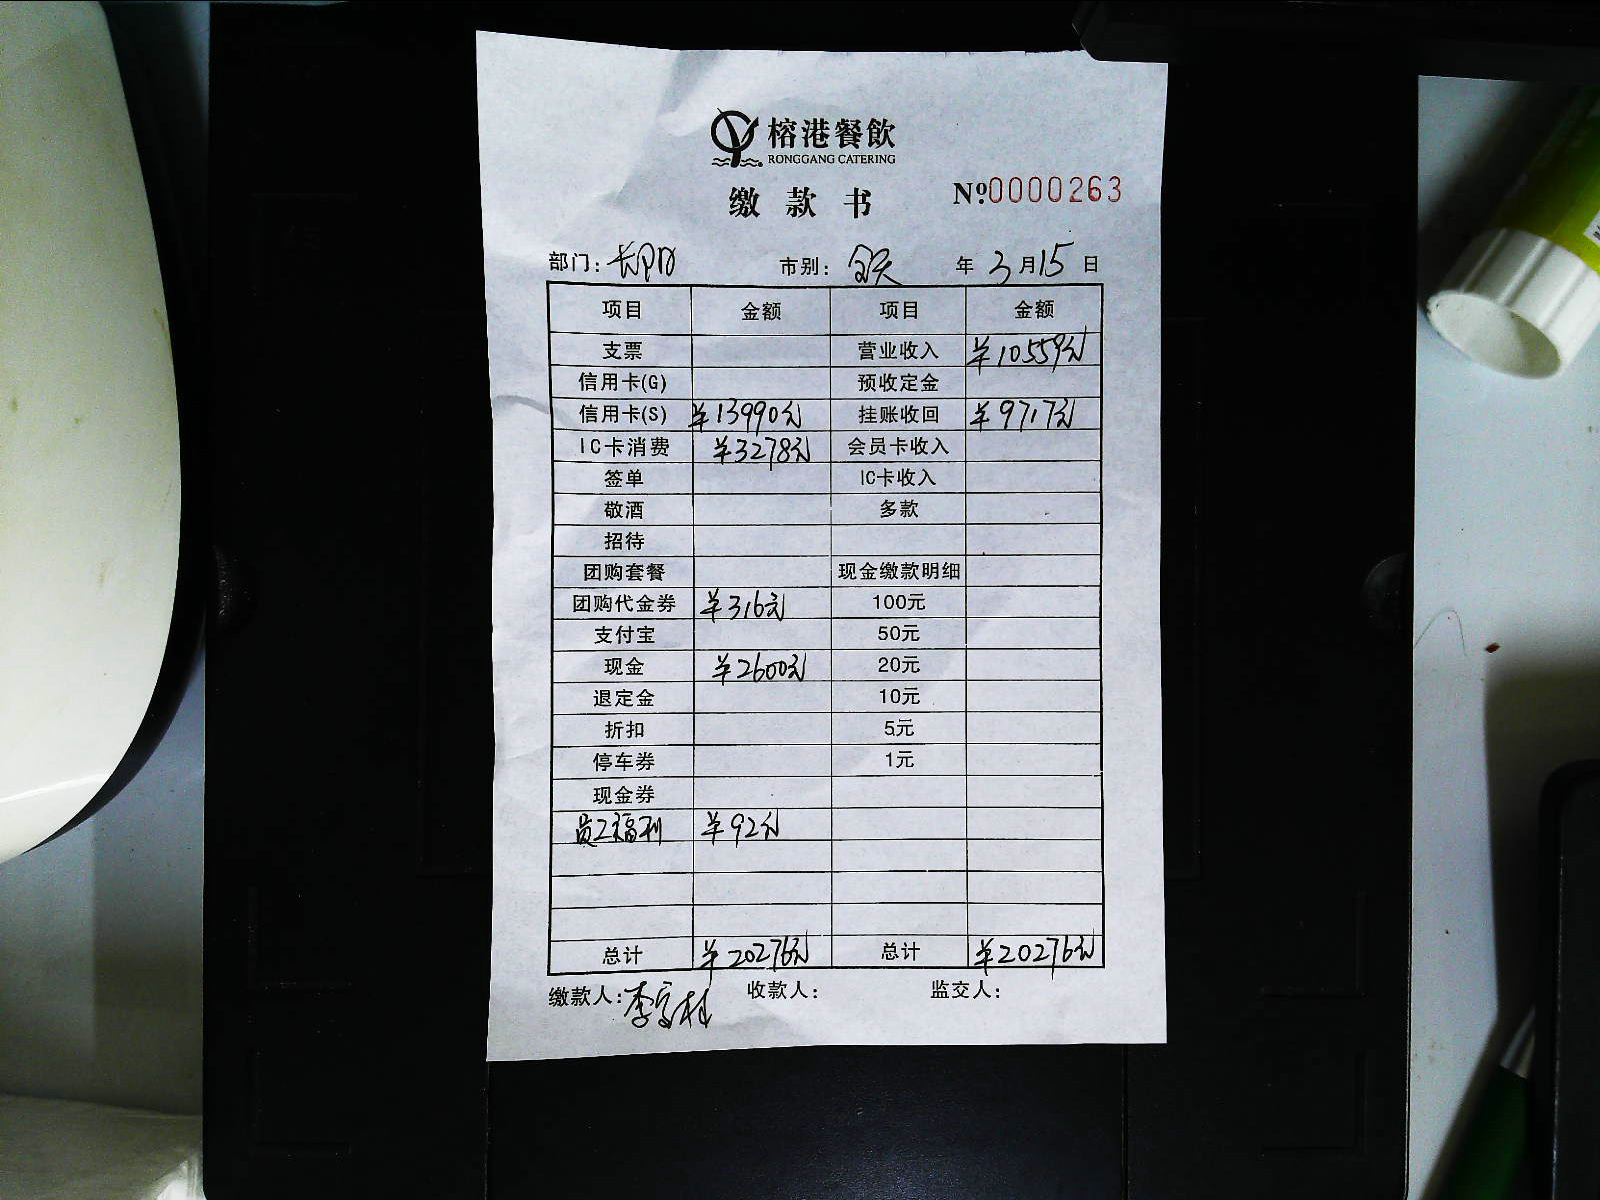 榕港餐飲
RONGGANG CATERING
缴款书 Nº0000263
部门: 市别: 全天 年 3月15日
项目 金额 项目 金额
支票 营业收入 ¥10559元
信用卡(G) 预收定金
信用卡(S) ¥13990元 挂账收回 ¥9717元
IC卡消费 ¥3278元 会员卡收入
签单 IC卡收入
敬酒 多款
招待
团购套餐 现金缴款明细
团购代金券 ¥316元 100元
支付宝 50元
现金 ¥2600元 20元
退定金 10元
折扣 5元
停车券 1元
现金券
员工福利 ¥92元
总计 ¥20276元 总计 ¥20276元
缴款人: 收款人: 监交人: